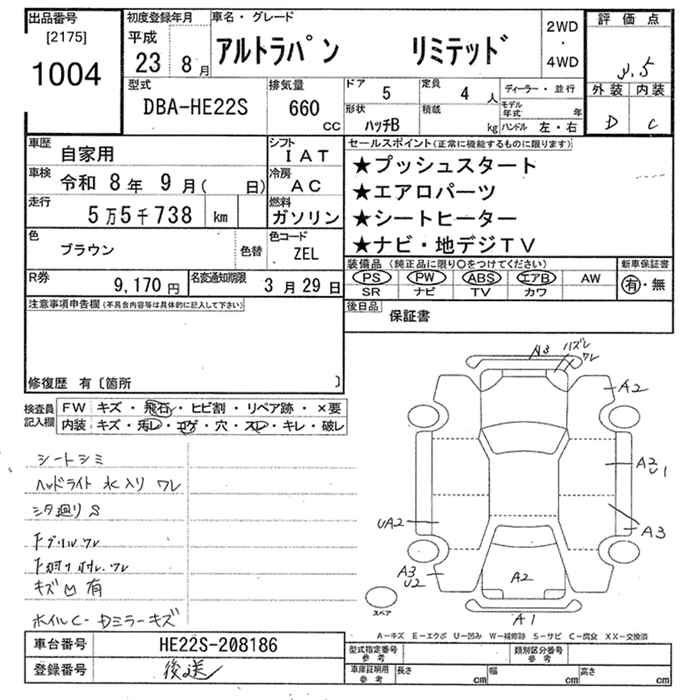 出品番号
[2175]
1004
初度登録年月
平成
23 8月
車名・グレード
アルトラパン リミテッド
2WD
・
4WD
評価点
3.5
外装 内装
D C
型式
DBA-HE22S
排気量
660
cc
ドア
5
定員
4 人
形状
ハッチB
積載
kg
ディーラー・並行
モデル年式 年
ハンドル 左・右
車歴
自家用
シフト
IAT
車検
令和 8年 9月( 日)
冷房
AC
走行
5万5千738 km
燃料
ガソリン
色
ブラウン
色替
色コード
ZEL
R券
9,170円
名変通知期限
3月29日
セールスポイント(正常に機能するものに限ります)
★プッシュスタート
★エアロパーツ
★シートヒーター
★ナビ・地デジTV
装備品(純正品に限り○をつけてください)
PS PW ABS エアB AW
SR ナビ TV カワ
新車保証書
有・無
後日品
保証書
注意事項申告欄(不具合内容等は具体的に記入して下さい)
修復歴 有〔箇所 〕
検査員記入欄
FW キズ・飛石・ヒビ割・リペア跡・×要
内装 キズ・汚レ・コゲ・穴・スレ・キレ・破レ
シートシミ
ヘッドライト 水入り ワレ
シタ廻り S
キズ 凹 有
ホイルC
ミラーキズ
A3
ハズレ
ワレ
A2
A2
U1
A3
UA2
A3
U2
A2
A1
スペア
A−キズ E−エクボ U−凹み W−補修跡 S−サビ C−腐食 XX−交換済
車台番号
HE22S-208186
登録番号
後送
型式指定番号
参考
類別区分番号
参考
車庫証明用
参考
長さ cm
幅 cm
高さ cm